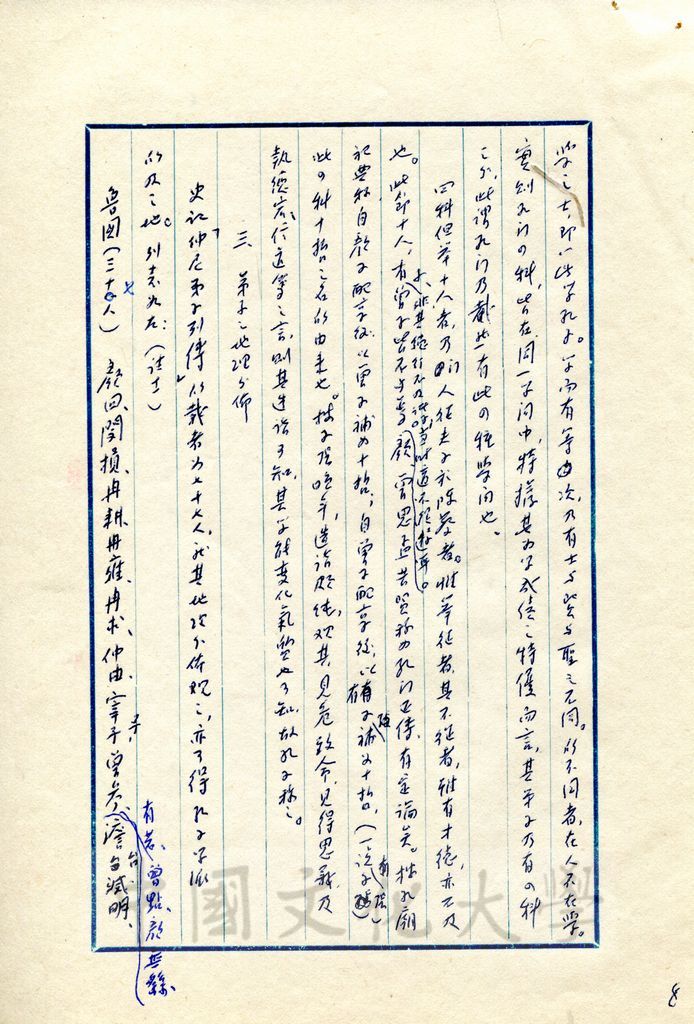 學之士，即以此學孔子。不過有等次，乃有士与賢与聖之不同。所不同者，在人不在學。
實則孔門四科，皆在同一學問中，特據其為學成德之特優而言，其弟子乃有四科
之分，此謂孔門乃截然有此四種學問也。
四科但舉十人者，乃門人從夫子於陳蔡者。惟舉從者，其不從者，雖有才德，亦不及
也。此即十人，有曾子皆不与焉，
顏曾思孟共習稱為孔門正傳，有定論矣。
祀典称自顏子配享後，以曾子補為十哲，自曾子配享後，以有子補為十哲，
此四科十哲之名所由來也。
造詣
觀其見危致命，見得思義，及
執德宏，信道篤之言，則其造詣可知，其學能變化氣質也可知，故孔子称之。
三、弟子之地理分佈
史記「仲尼弟子列傳」所載者為七十七人，就其地域分佈觀之，亦可得孔子學派
所及之地。列表如左：(註十一)
魯國(三十七人) 顏回、閔損、冉耕、冉雍、冉求、仲由、宰予、曾參、澹台滅明、
有若、曾點、顏無繇、
中國文化大學
8